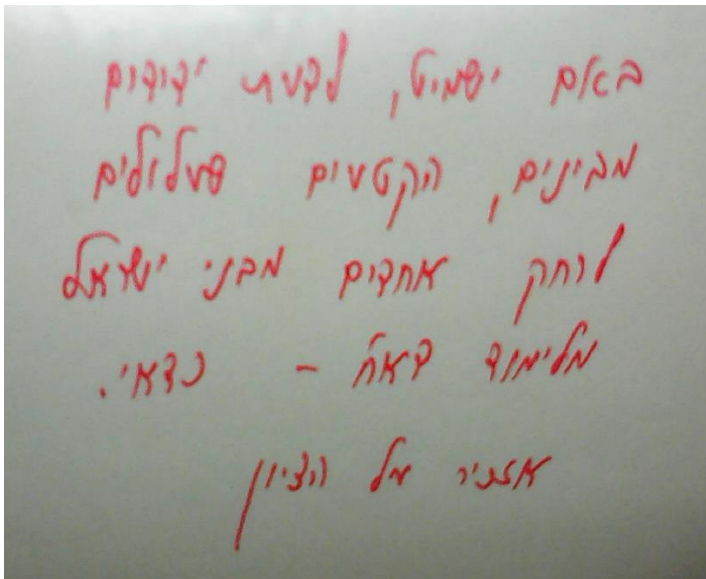 באם ישמיט, לדעת ידידים
מבינים, הקטעים שעלולים
לרחק אחדים מבני ישראל
מלימוד דא"ח – כדאי.
אזכיר על הציון